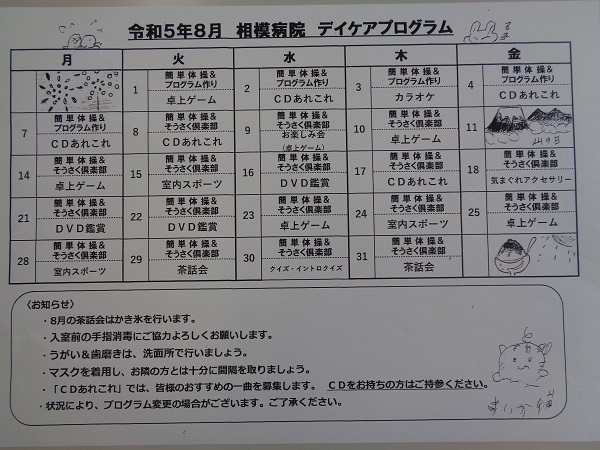 令和5年8月 相模病院 デイケアプログラム
月 火 水 木 金
1 簡単体操&プログラム作り
卓上ゲーム
2 簡単体操&プログラム作り
CDあれこれ
3 簡単体操&プログラム作り
カラオケ
4 簡単体操&プログラム作り
CDあれこれ
7 簡単体操&プログラム作り
CDあれこれ
8 簡単体操&そうさく倶楽部
CDあれこれ
9 簡単体操&そうさく倶楽部
お楽しみ会
(卓上ゲーム)
10 簡単体操&そうさく倶楽部
卓上ゲーム
11
山の日
14 簡単体操&そうさく倶楽部
卓上ゲーム
15 簡単体操&そうさく倶楽部
室内スポーツ
16 簡単体操&そうさく倶楽部
DVD鑑賞
17 簡単体操&そうさく倶楽部
CDあれこれ
18 簡単体操&そうさく倶楽部
気まぐれアクセサリー
21 簡単体操&そうさく倶楽部
DVD鑑賞
22 簡単体操&そうさく倶楽部
DVD鑑賞
23 簡単体操&そうさく倶楽部
卓上ゲーム
24 簡単体操&そうさく倶楽部
室内スポーツ
25 簡単体操&そうさく倶楽部
卓上ゲーム
28 簡単体操&そうさく倶楽部
室内スポーツ
29 簡単体操&そうさく倶楽部
茶話会
30 簡単体操&そうさく倶楽部
クイズ・イントロクイズ
31 簡単体操&そうさく倶楽部
茶話会
〈お知らせ〉
・8月の茶話会はかき氷を行います。
・入室前の手指消毒にご協力よろしくお願いします。
・うがい&歯磨きは、洗面所で行いましょう。
・マスクを着用し、お隣の方とは十分に間隔を取りましょう。
・「CDあれこれ」では、皆様のおすすめの一曲を募集します。 CDをお持ちの方はご持参ください。
・状況により、プログラム変更の場合がございます。ご了承ください。